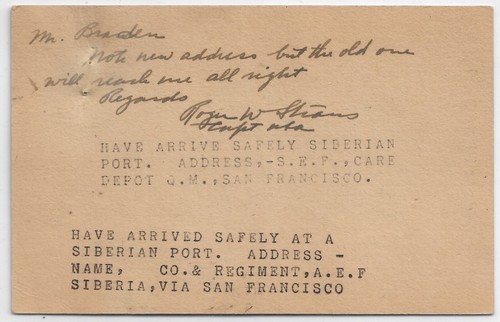 Mr. Braden
Note new address but the old one
will reach me all right
Regards
Roger W Straus
Capt usa
HAVE ARRIVE SAFELY SIBERIAN
PORT. ADDRESS,-S.E.F.,CARE
DEPOT Q.M.,SAN FRANCISCO.
HAVE ARRIVED SAFELY AT A
SIBERIAN PORT. ADDRESS -
NAME, CO.& REGIMENT,A.E.F
SIBERIA,VIA SAN FRANCISCO